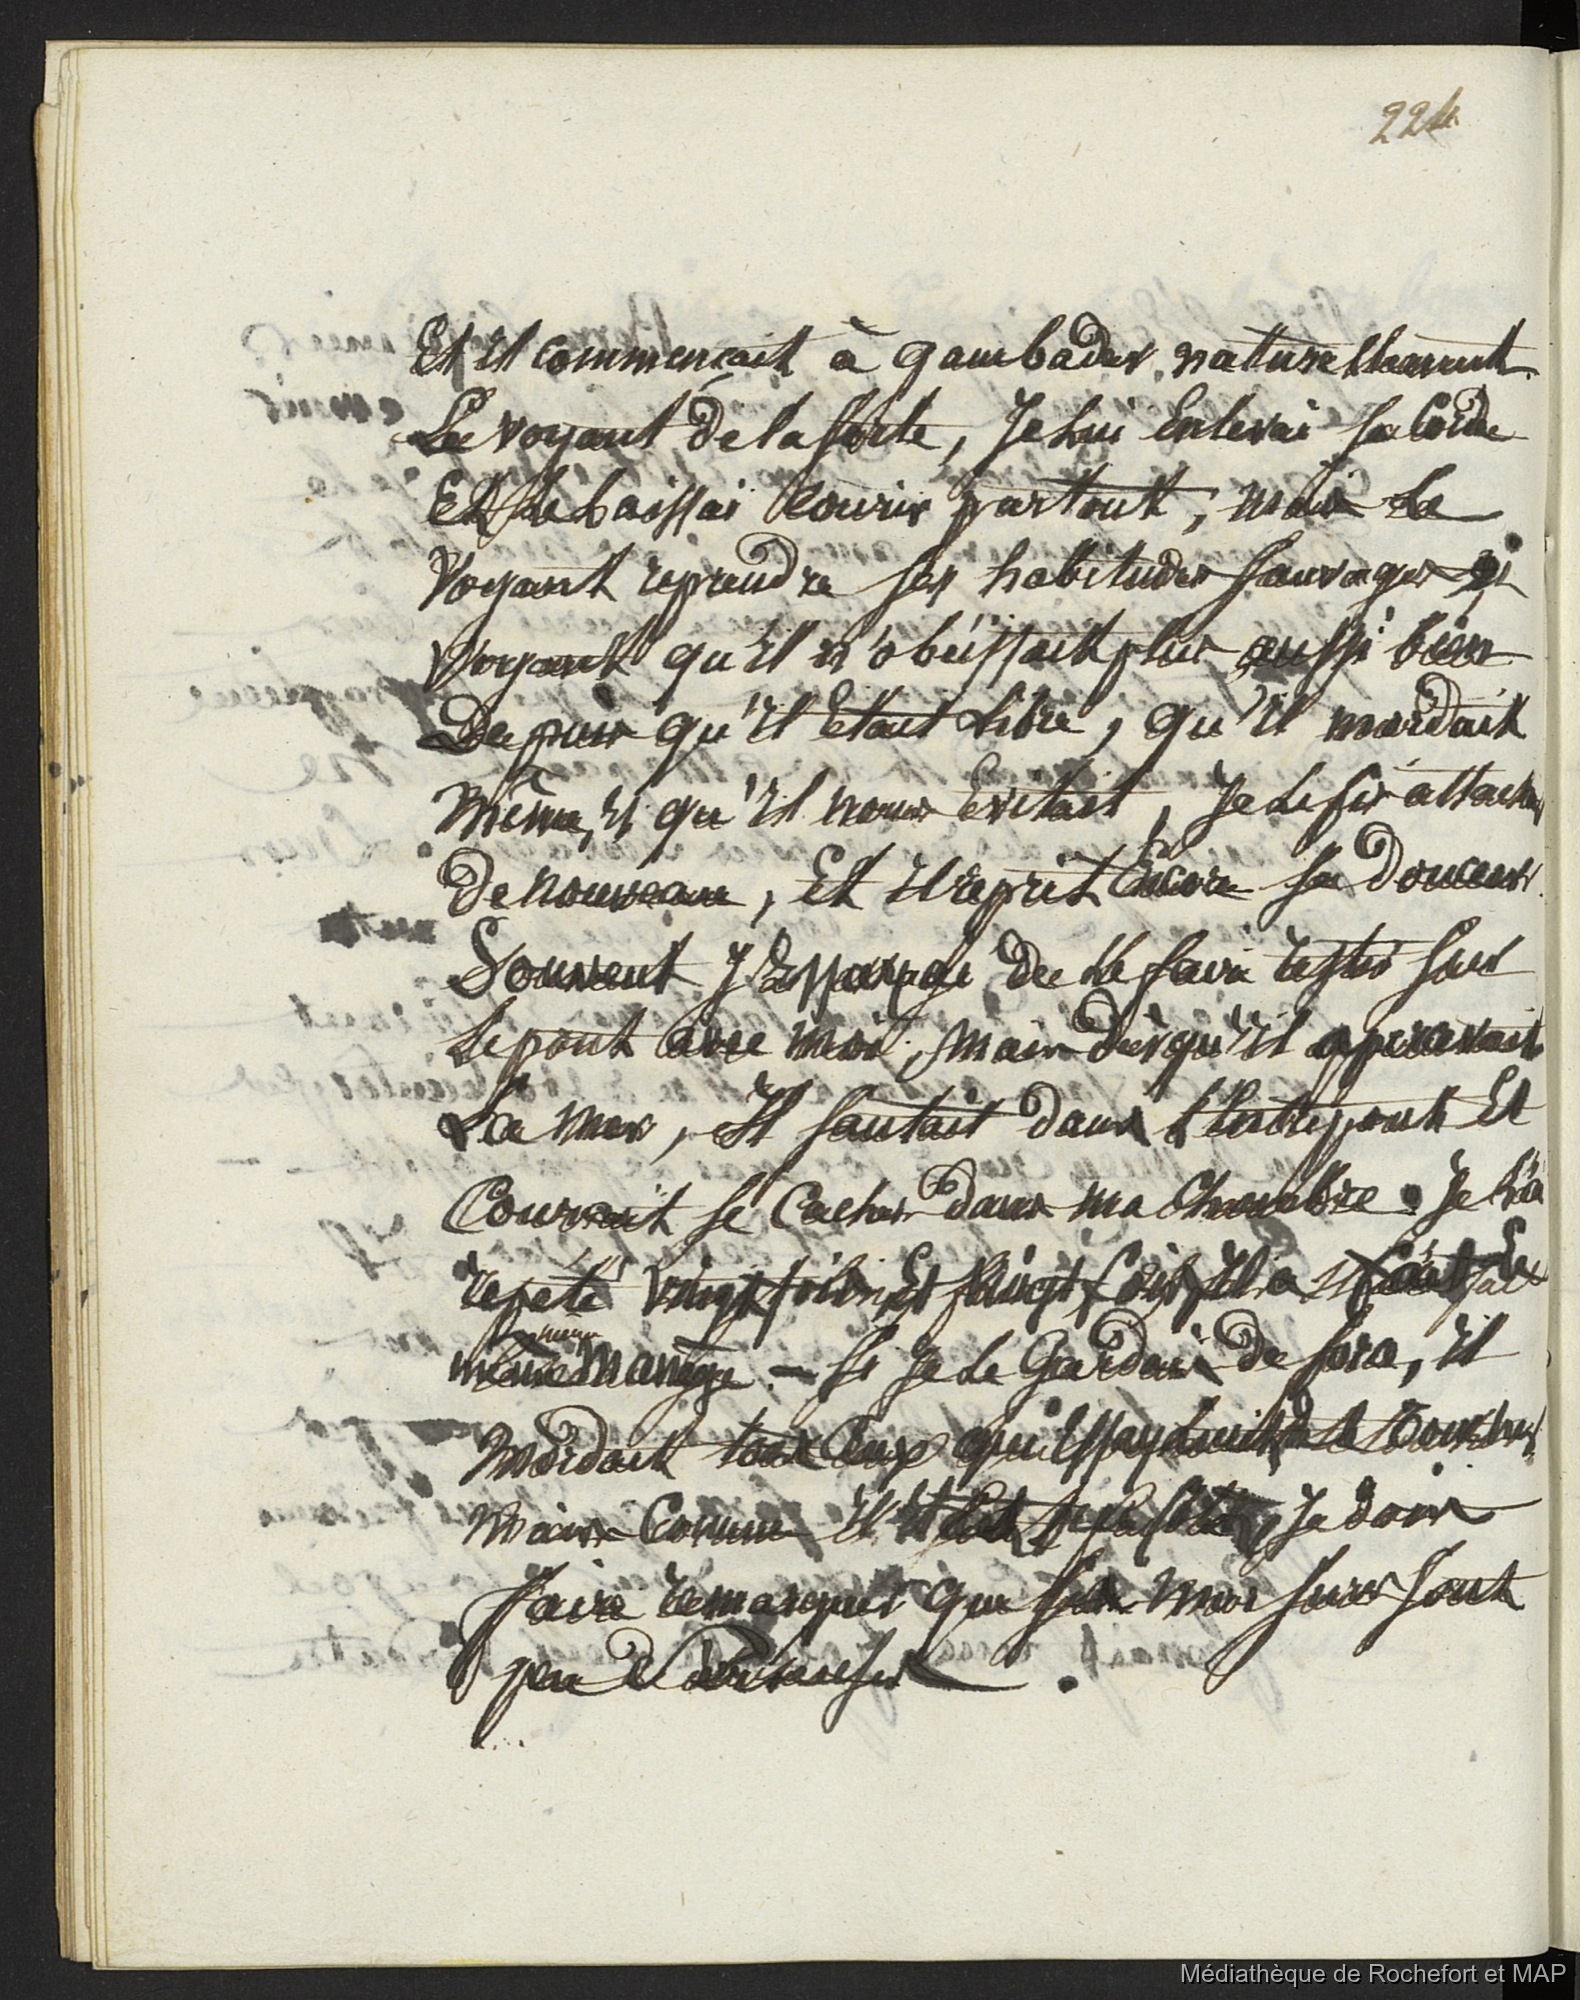 224
Et il commençait à gambader naturellement.
Le voyant de la sorte, Je lui Enlevai sa Corde
Et Je Le Laissai Courir partout, mais Le
Voyant reprendre ses habitudes sauvages et
Voyant qu'il n'obéissait plus aussi bien
Depuis qu'il Etait Libre, qu'il mordait
même, et qu'il nous Evitait, Je Le fis attacher
De nouveau, Et il reprit Encore sa Douceur.
Souvent J'Essayai De Le faire rester sur
Le pont avec moi, mais Dès qu'il apercevait
La mer, Il sautait dans L'Entrepont Et
Courrait se Cacher dans ma Chambre. Je L'ai
répété vingt fois, Et vingt fois il a Le
même manège. - Si Je Le Gardais De force, il
Mordait tous Ceux qui Essayaient de Le toucher.
Mais Comme il Je dois
faire remarquer que ses morsures sont
peu
Médiathèque de Rochefort et MAP